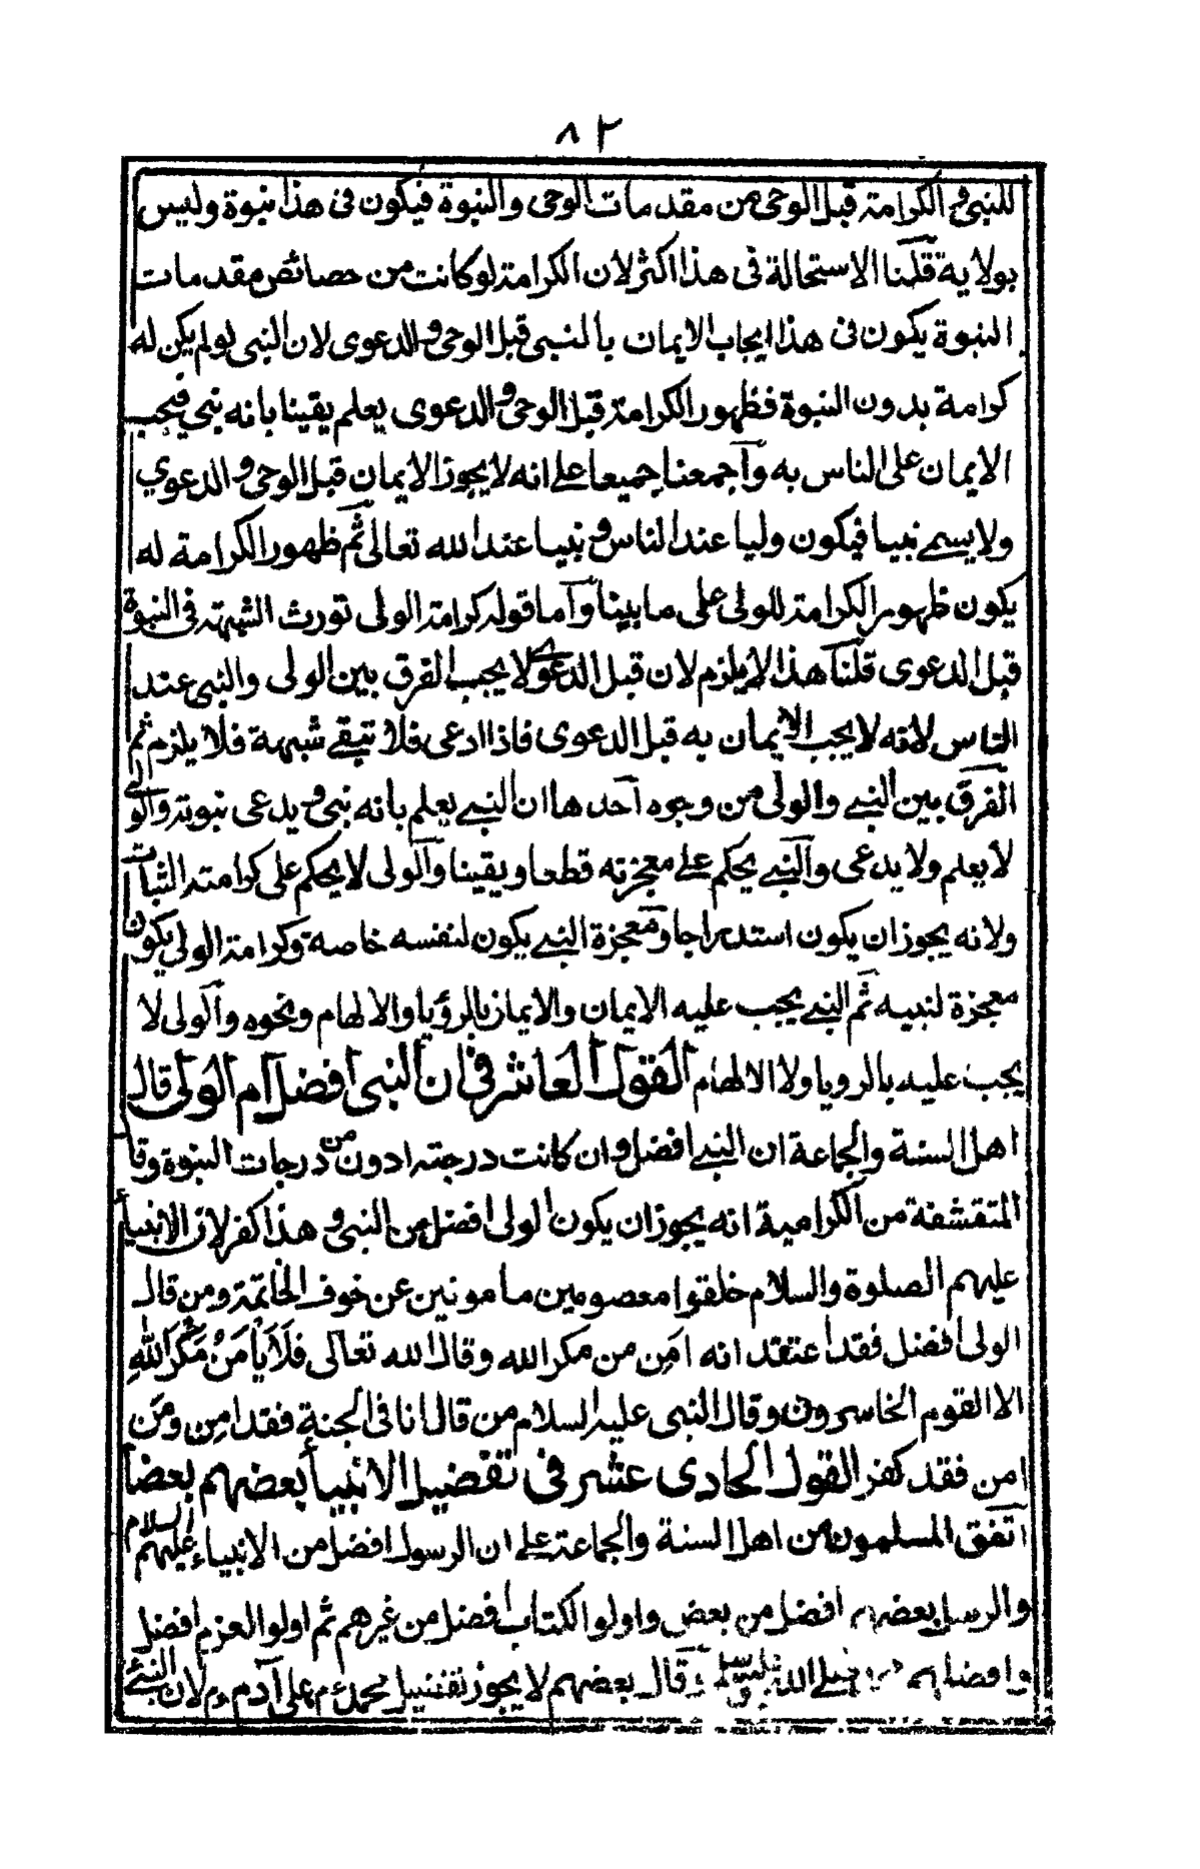 ٨٢
للنبى و الكرامة قبل الوحى من مقدمات الوحى والنبوة فيكون فى هذا نبوة وليس
بولاية قلنا الاستحالة فى هذا اكثر لان الكرامة لو كانت من خصائص مقدمات
النبوة يكون فى هذا ايجاب الايمان بالنبى قبل الوحى والدعوى لان النبى لو لم يكن له
كرامة بدون النبوة فظهور الكرامة قبل الوحى والدعوى يعلم يقينا بانه نبى فيجب
الايمان على الناس به واجمعنا جميعا على انه لا يجوز الايمان قبل الوحى و الدعوي
ولا يسمے نبيا فيكون وليا عند الناس و نبيا عند الله تعالى ثم ظهور الكرامة له
يكون ظهور الكرامة للولى على ما بينا واما قوله كرامة الولى تورث الشبهة فى النبوة
قبل الدعوى قلنا هذا لا يلزم لان قبل الدعوے لا يجب الفرق بين الولى والنبى عند
الناس لانه لا يجب الايمان به قبل الدعوى فاذا ادعى فلا تبقے شبهة فلا يلزم ثم
الفرق بين النبے والولى من وجوه احدها ان النبے يعلم بانه نبى و يدعى نبوته والولے
لا يعلم ولا يدعى والنبے يحكم علے معجزته قطعا ويقينا والولى لا يحكم على كرامته الثبات
ولانه يجوز ان يكون استدراجا ومعجزة النبے يكون لنفسه خاصة وكرامة الولى يكون
معجزة لنبيه ثم النبے يجب عليه الايمان والايمان بالرؤيا والالهام ونحوه والولى لا
يجب عليه بالرويا ولا الالهام القول العاشر فى ان النبى افضل ام الولى قال
اهل السنة والجماعة ان النبے افضل وان كانت درجته ادون من درجات النبوة وقا
المتقشفة من الكرامية انه يجوز ان يكون الولى افضل من النبى و هذا كفر لان الانبياء
عليهم الصلوة والسلام خلقوا معصومين مامونين عن خوف الخاتمة ومن قال
الولى افضل فقد اعتقد انه امن من مكر الله وقال الله تعالى فَلَا يَأْمَنُ مَكْرَ اللهِ
الا القوم الخاسرون وقال النبى عليه السلام من قال انا فى الجنة فقد امِن ومَن
امن فقد كفر القول الحادى عشر فى تفضيل الانبيأ بعضهم بعضا
اتفق المسلمون من اهل السنة والجماعة علے ان الرسول افضل من الانبياء عليهم السلام
والرسل بعضهم افضل من بعض واولو الكتاب افضل من غيرهم ثم اولو العزم افضل
وافضلهم صلے الله عليه وسلم وقال بعضهم لا يجوز تفضيل محمد م على آدم م لان النبے